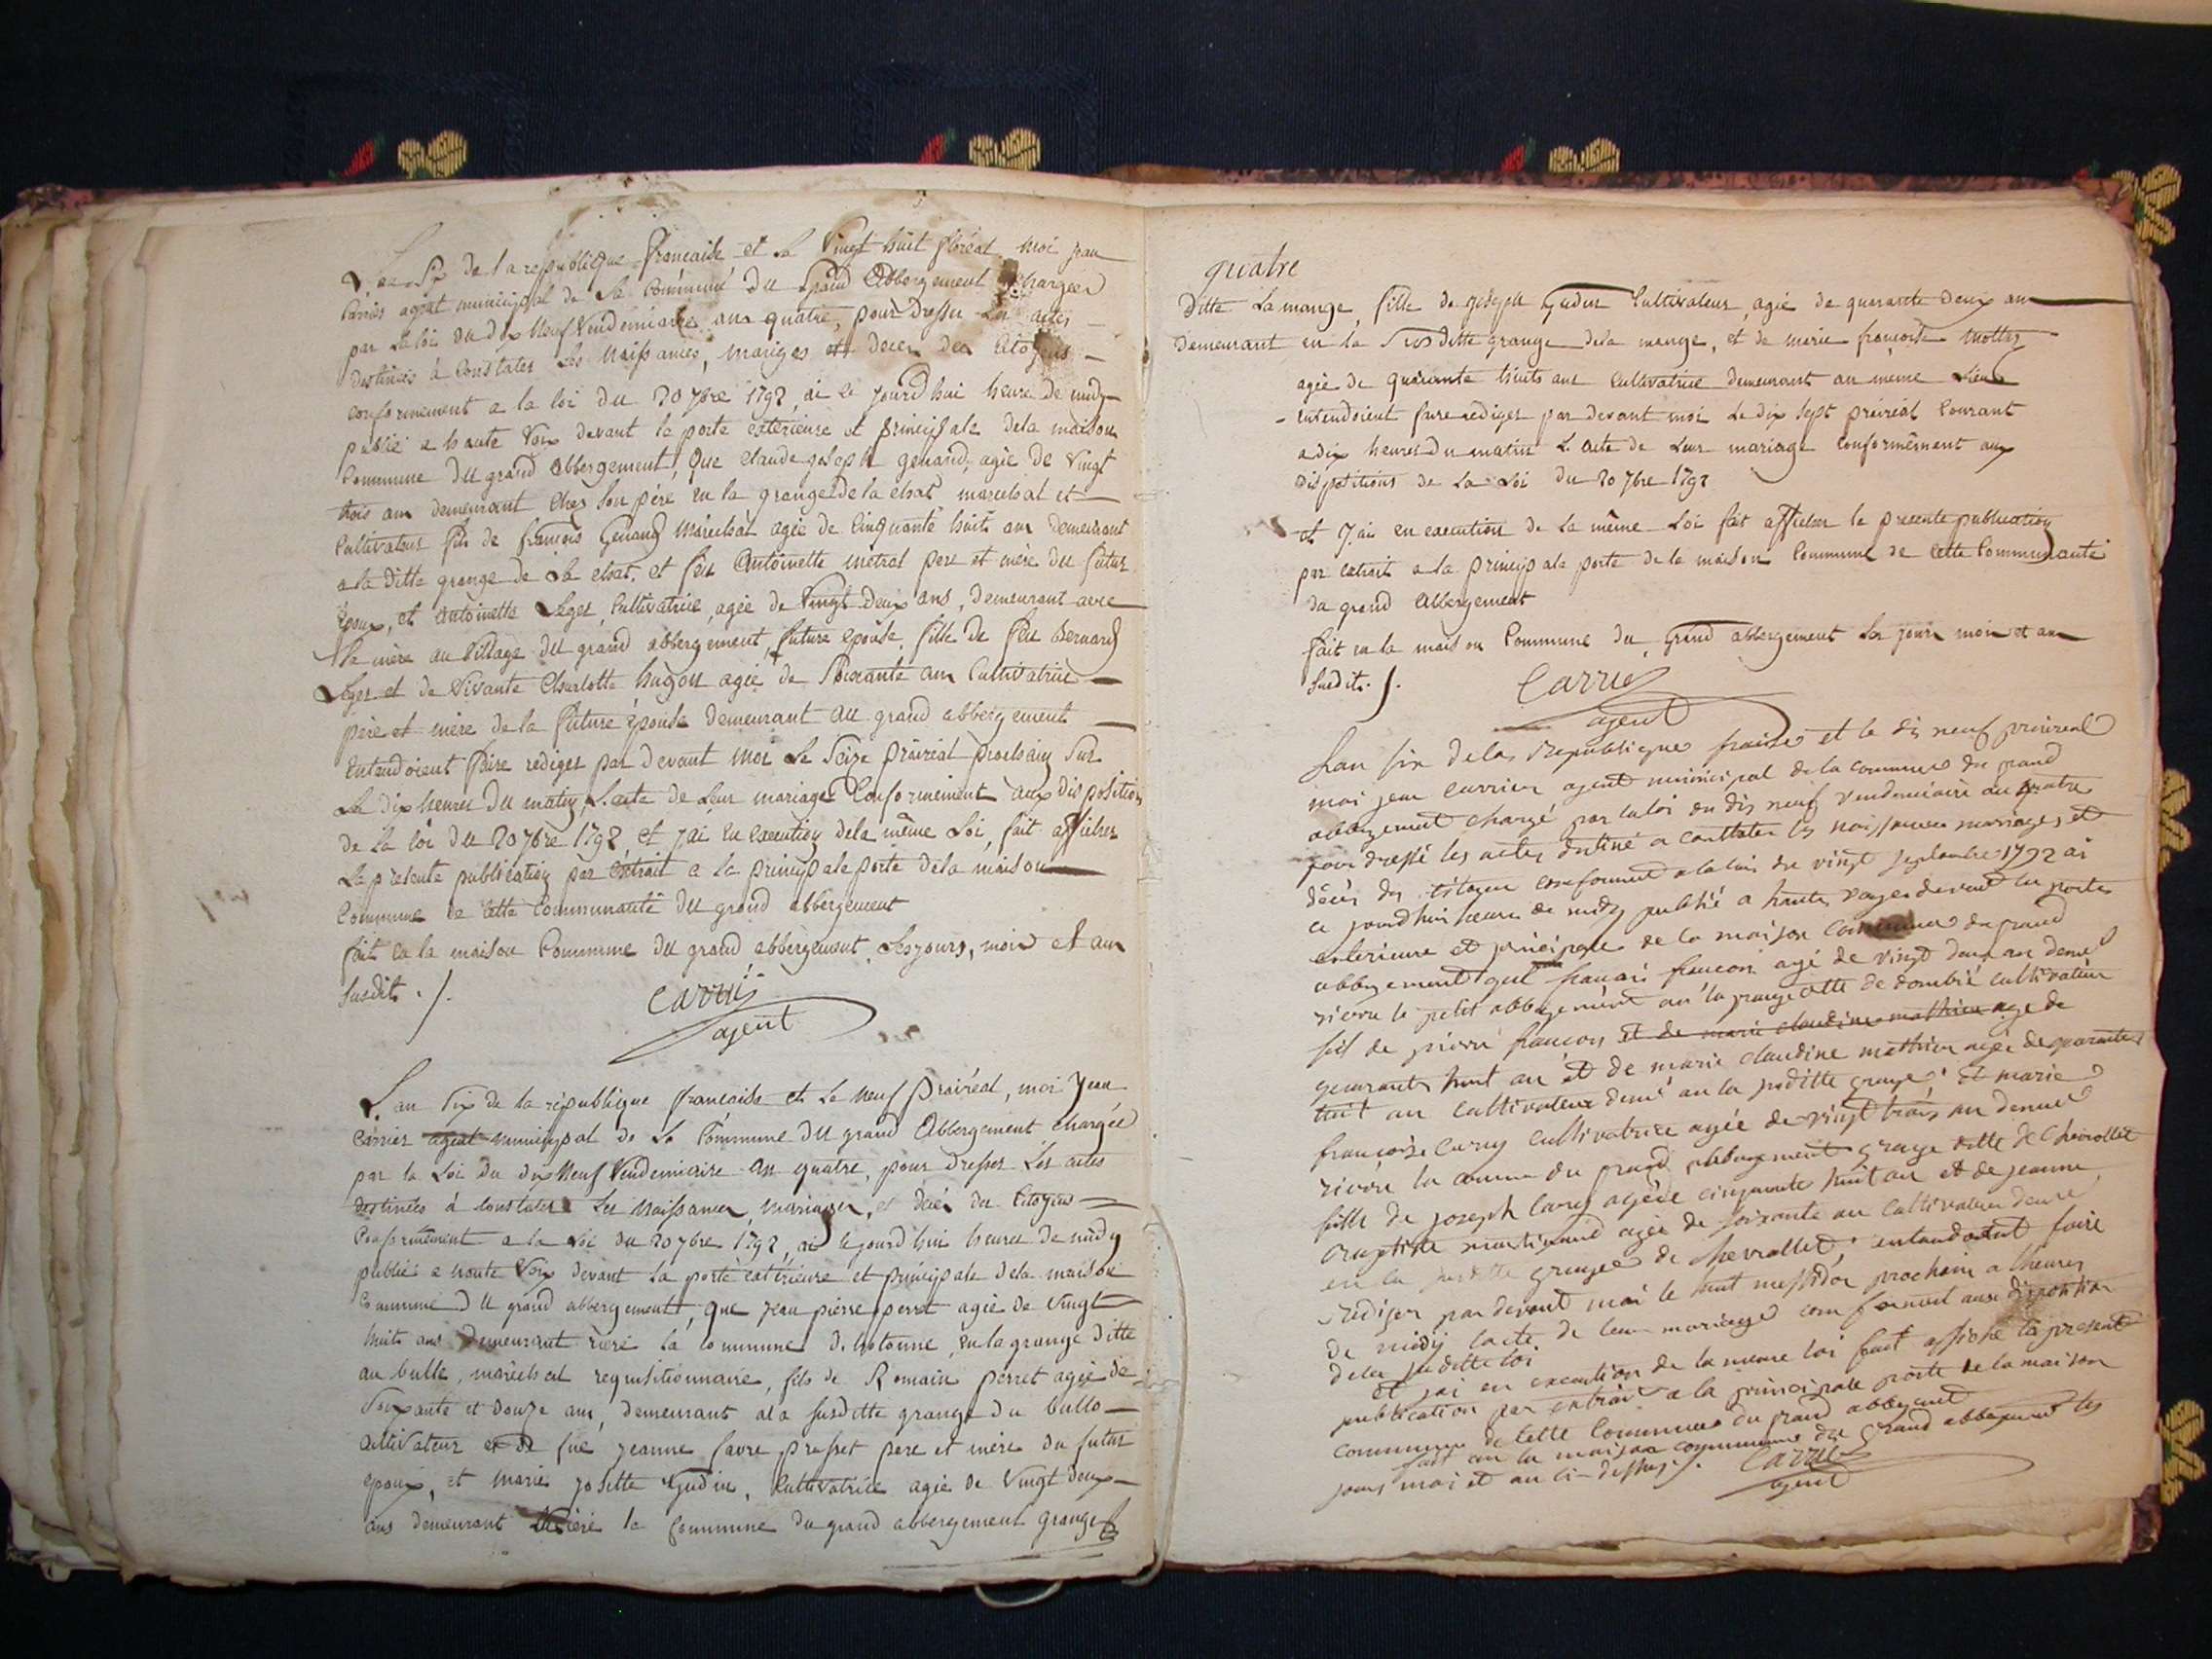 L'an Six de la republique francaise et Le Vingt huit floréal moi jean
Carrier agent municipal de La Commune du Grand Abbergement chargée
par La loi du dix Neuf Vendemiaire an quatre, pour Dresser Les actes
destinés à Constater Les Naissances, mariges et deces des Citoyens
conformement a la loi du 20 7bre 1792, ai ce jourd'hui heure de midy
publié a haute Voix devant la porte exterieure et principale dela maison
Commune du grand abbergement, que claude joseph genand, agée de Vingt
trois ans demeurant chez Son père en la grange de la chat marechal et
Cultivateur fils de françois Genand Marechal agée de Cinquante huit ans demeurant
a la Ditte grange de La chat, et feu Antoinette métral pere et mère du futur
Epoux, et antoinette Leger, Cultivatrice, agée de Vingt Deux ans, demeurant avec
Sa mère au Village du grand abbergement, future epouse, fille de feu Bernard
Leger et de Vivante Charlotte hugon agée de Soixante ans Cultivatrice
père et mère de la future épouse demeurant au grand abbergement
Entendoient faire rediger par devant moi Le Seize prairéal prochain Sur
Le dix heures du matin, L'acte de Leur mariage Conformement aux disposition
de La loi du 20 7bre 1792, et j'ai en execution dela même Loi, fait afficher
La presente publication par extrait a La principale porte dela maison
Commune de cette Communauté du grand abbergement
fait en la maison Commune du grand abbergement Les jours, mois et an
Susdits ./.
Carrier
agent
L'an Six de la république francaise et Le Neuf Prairéal, moi Jean
Carrier agent municipal de La Commune du grand Abbergement chargée
par la Loi du dix Neuf Vendemiaire an quatre, pour dresser Les actes
destinées à Constater Les Naissances, mariages, et décés des Citoyens
Conformement a la Loi du 20 7bre 1792, ai cejourd'hui heure de midy
publié a haute Voix devant La porte extérieure et principale dela maison
Commune du grand abbergement, que Jean pierre perret agée de Vingt
huits ans demeurant riere La Commune d'hotonne, en la grange ditte
au bulle, maréchal requisitionnaire, fils de Romain perret agée de
Soixante et Douze ans, demeurant ala susditte grange du bullo
Cultivateur et de fue jeanne favre presset pere et mère du futur
epoux, et Marie josette Gudin, Cultivatrice agée de Vingt deux
ans demeurant riere la Commune du grand abbergement grange
quatre
Ditte La mange, fille de joseph Gudin Cultivateur, agée de quarante deux an
Demeurant en la Susditte grange dela mange, et de marie francoise mottaz
agée de quarante huits ans Cultivatrice demeurant au même Lieu
entendoient faire rediger par devant moi Le dix Sept préréal Courant
a dix heures du matin L'acte de Leur mariage Conformêment aux
dispositions de La Loi du 20 7bre 1792
et J'ai en execution de La même Loi fait afficher la presente publication
par extrait a la principale porte de la maison Commune de Cette Communauté
du grand Abbergement
fait en la maison Commune du Grand abbergement Les jours mois et an
Susdits ./.
Carrier
agent
Lan six dela Republique fraise et le dis neuf prereal
moi jean carrier agent municipal dela commune du grand
abbergement chargé par la loi du dis neuf vendemiaire an quatre
pour dressé les actes destiné a constater les naissances mariages et
décés des citoyen conforment a la loi du vingt septembre 1792 ai
ce jourdhui heure de midy publié a haute voye devant la porte
exterieure et principale de la maison commune du grand
abbergement que françois françon agé de vingt deux an demt
rierre le petit abbergement an la grange ditte de dombié cultivateur
fils de pierre françon et de marie claudine mathieu age de
quarante huit an et de marie claudine mathieu agée de quarante
huit an cultivateur demt an la suditte grange; et marie
françoise carry cultivatrice agée de vingt trois an demeu
rierre la commune du grand abbergement grange ditte de chevrollet
fille de joseph carry agé de cinquante huit an et de jeanne
baptiste martinand agée de soixante an cultivateur demt
en la suditte grange de chevrollet, entandoient faire
rediger par devant moi le huit messidor prochain a lheures
de midy lacte de leur mariage conforment aux disposition
dela suditte loi
et jai en execution de la meme loi fait affiché la present
publication par extrait a la principale porte de la maison
commune de cette Commune du grand abbergement
fait an la maison commune du grand abbergement les
jours moi et an ci-dessus ./.
Carrier
agent